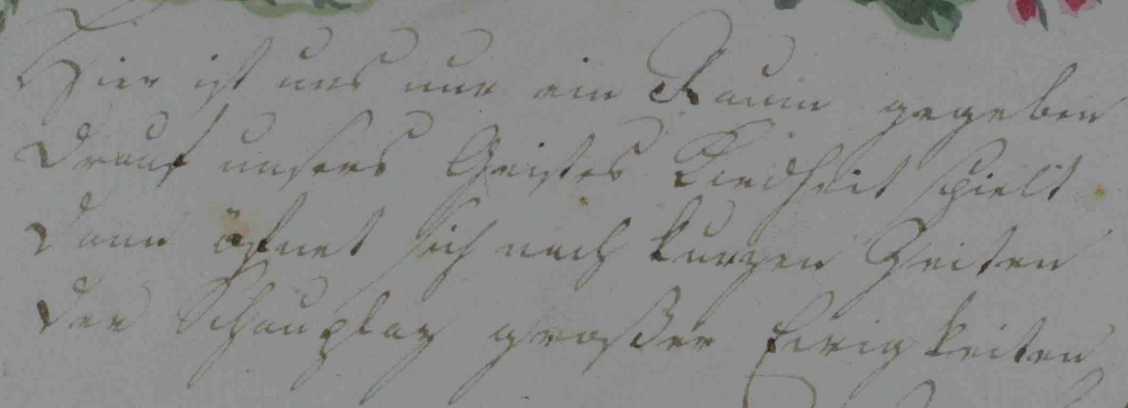 Hier ist uns nur ein Raum gegeben
Drauf unsers Geistes Kindheit spielt
Dann öfnet sich nach kurzen Zeiten
Der Schauplaz großer Ewigkeiten